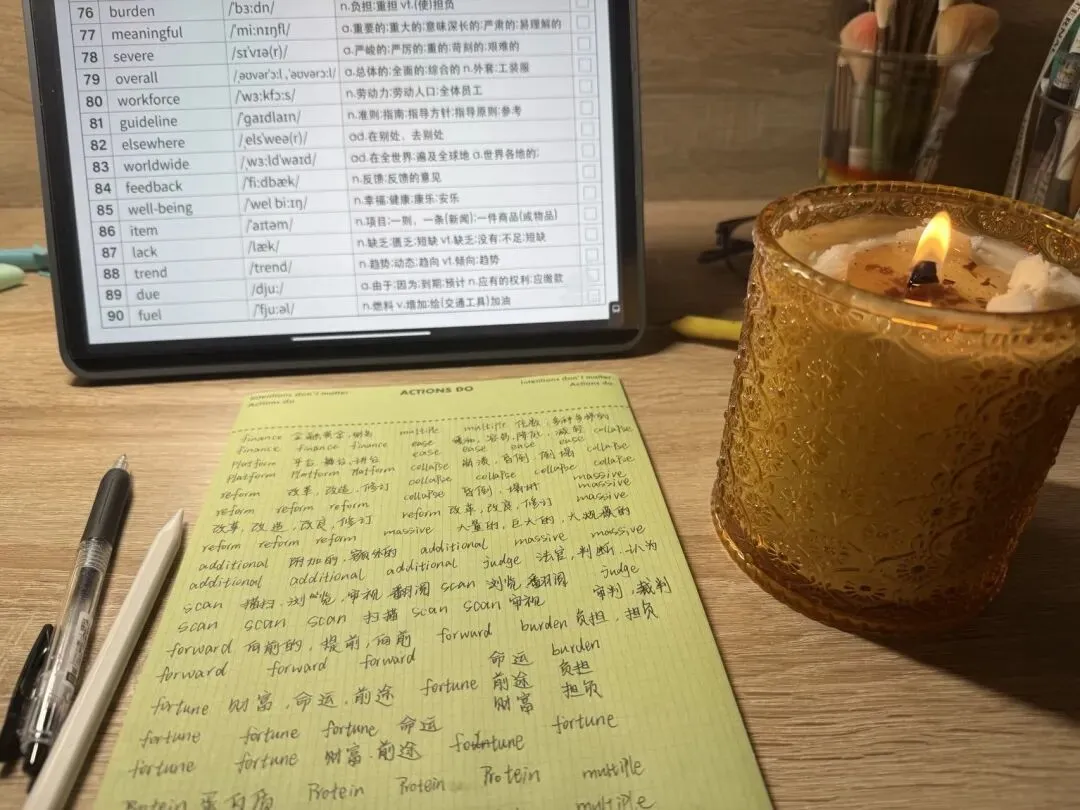 76 burden /ˈbɜːdn/ n.负担;重担 vt.(使)担负
77 meaningful /ˈmiːnɪŋfl/ a.重要的;重大的;意味深长的;严肃的;易理解的
78 severe /sɪˈvɪə(r)/ a.严峻的;严厉的;重的;苛刻的;艰难的
79 overall /ˌəʊvərˈɔːl,ˈəʊvərɔːl/ a.总体的;全面的;综合的 n.外套;工装服
80 workforce /ˈwɜːkfɔːs/ n.劳动力;劳动人口;全体员工
81 guideline /ˈɡaɪdlaɪn/ n.准则;指南;指导方针;指导原则;参考
82 elsewhere /ˌelsˈweə(r)/ ad.在别处、去别处
83 worldwide /ˌwɜːldˈwaɪd/ ad.在全世界;遍及全球地 a.世界各地的;
84 feedback /ˈfiːdbæk/ n.反馈;反馈的意见
85 well-being /ˈwel biːɪŋ/ n.幸福;健康;康乐;安乐
86 item /ˈaɪtəm/ n.项目;一则,一条(新闻);一件商品(或物品)
87 lack /læk/ n.缺乏;匮乏;短缺 vt.缺乏;没有;不足;短缺
88 trend /trend/ n.趋势;动态;趋向 vt.倾向;趋势
89 due /djuː/ a.由于;因为;到期;预计 n.应有的权利;应缴款
90 fuel /ˈfjuːəl/ n.燃料 v.增加;给(交通工具)加油
Intentions don't matter ACTIONS DO Intentions don't matter
Actions do Actions do
finance multiple multiple 多种多样的
finance finance finance ease 容易,降低,减轻 collapse
Platform 平台,舞台,讲台 ease ease ease ease
Platform Platform Platform collapse 崩溃,昏倒,倒塌 collapse
reform 改革,改造,修订 collapse collapse collapse massive
reform reform reform collapse 昏倒,塌 massive
改革,改造,改良,修订 reform 改革,改良,修订 massive
reform reform reform massive 大量的,巨大的,大规模的
additional 附加的,额外的 additional massive massive
additional additional additional judge 法官,判断,认为
scan 扫描,浏览,审视 翻阅 scan 浏览 翻阅 judge
scan scan scan 扫描 scan scan 审视 审判,裁判
forward 向前的,提前,向前 forward burden 负担,担负
forward forward forward 命运 burden
fortune 财富,命运,前途 fortune 前途 负担
财富 担负
fortune fortune fortune 命运 fortune
fortune fortune 财富.前途 fortune
Protein 蛋白质 Protein Protein Protein multiple
multiple